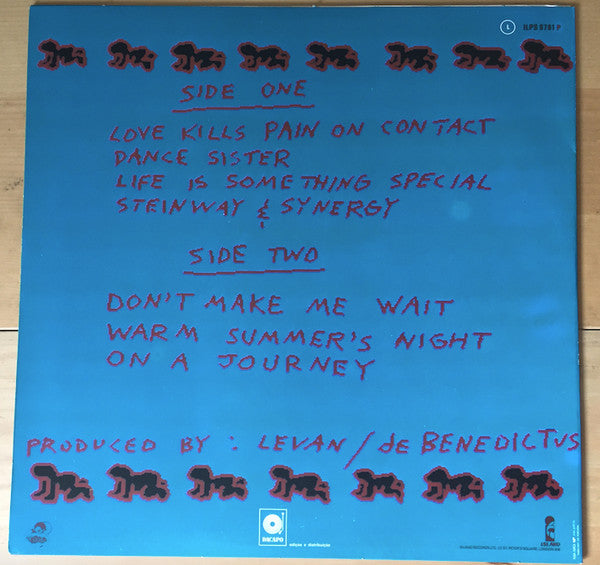 L ILPS 9781 P
SIDE ONE
LOVE KILLS PAIN ON CONTACT
DANCE SISTER
LIFE IS SOMETHING SPECIAL
STEINWAY & SYNERGY
SIDE TWO
DON'T MAKE ME WAIT
WARM SUMMER'S NIGHT
ON A JOURNEY
PRODUCED BY : LEVAN / de BENEDICTUS
DACAPO
edição e distribuição
ISLAND